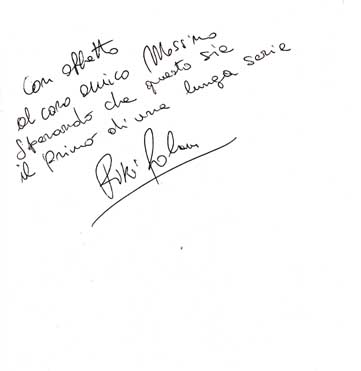 Con affetto
al caro amico Massimo
sperando che questo sia
il primo di una lunga serie